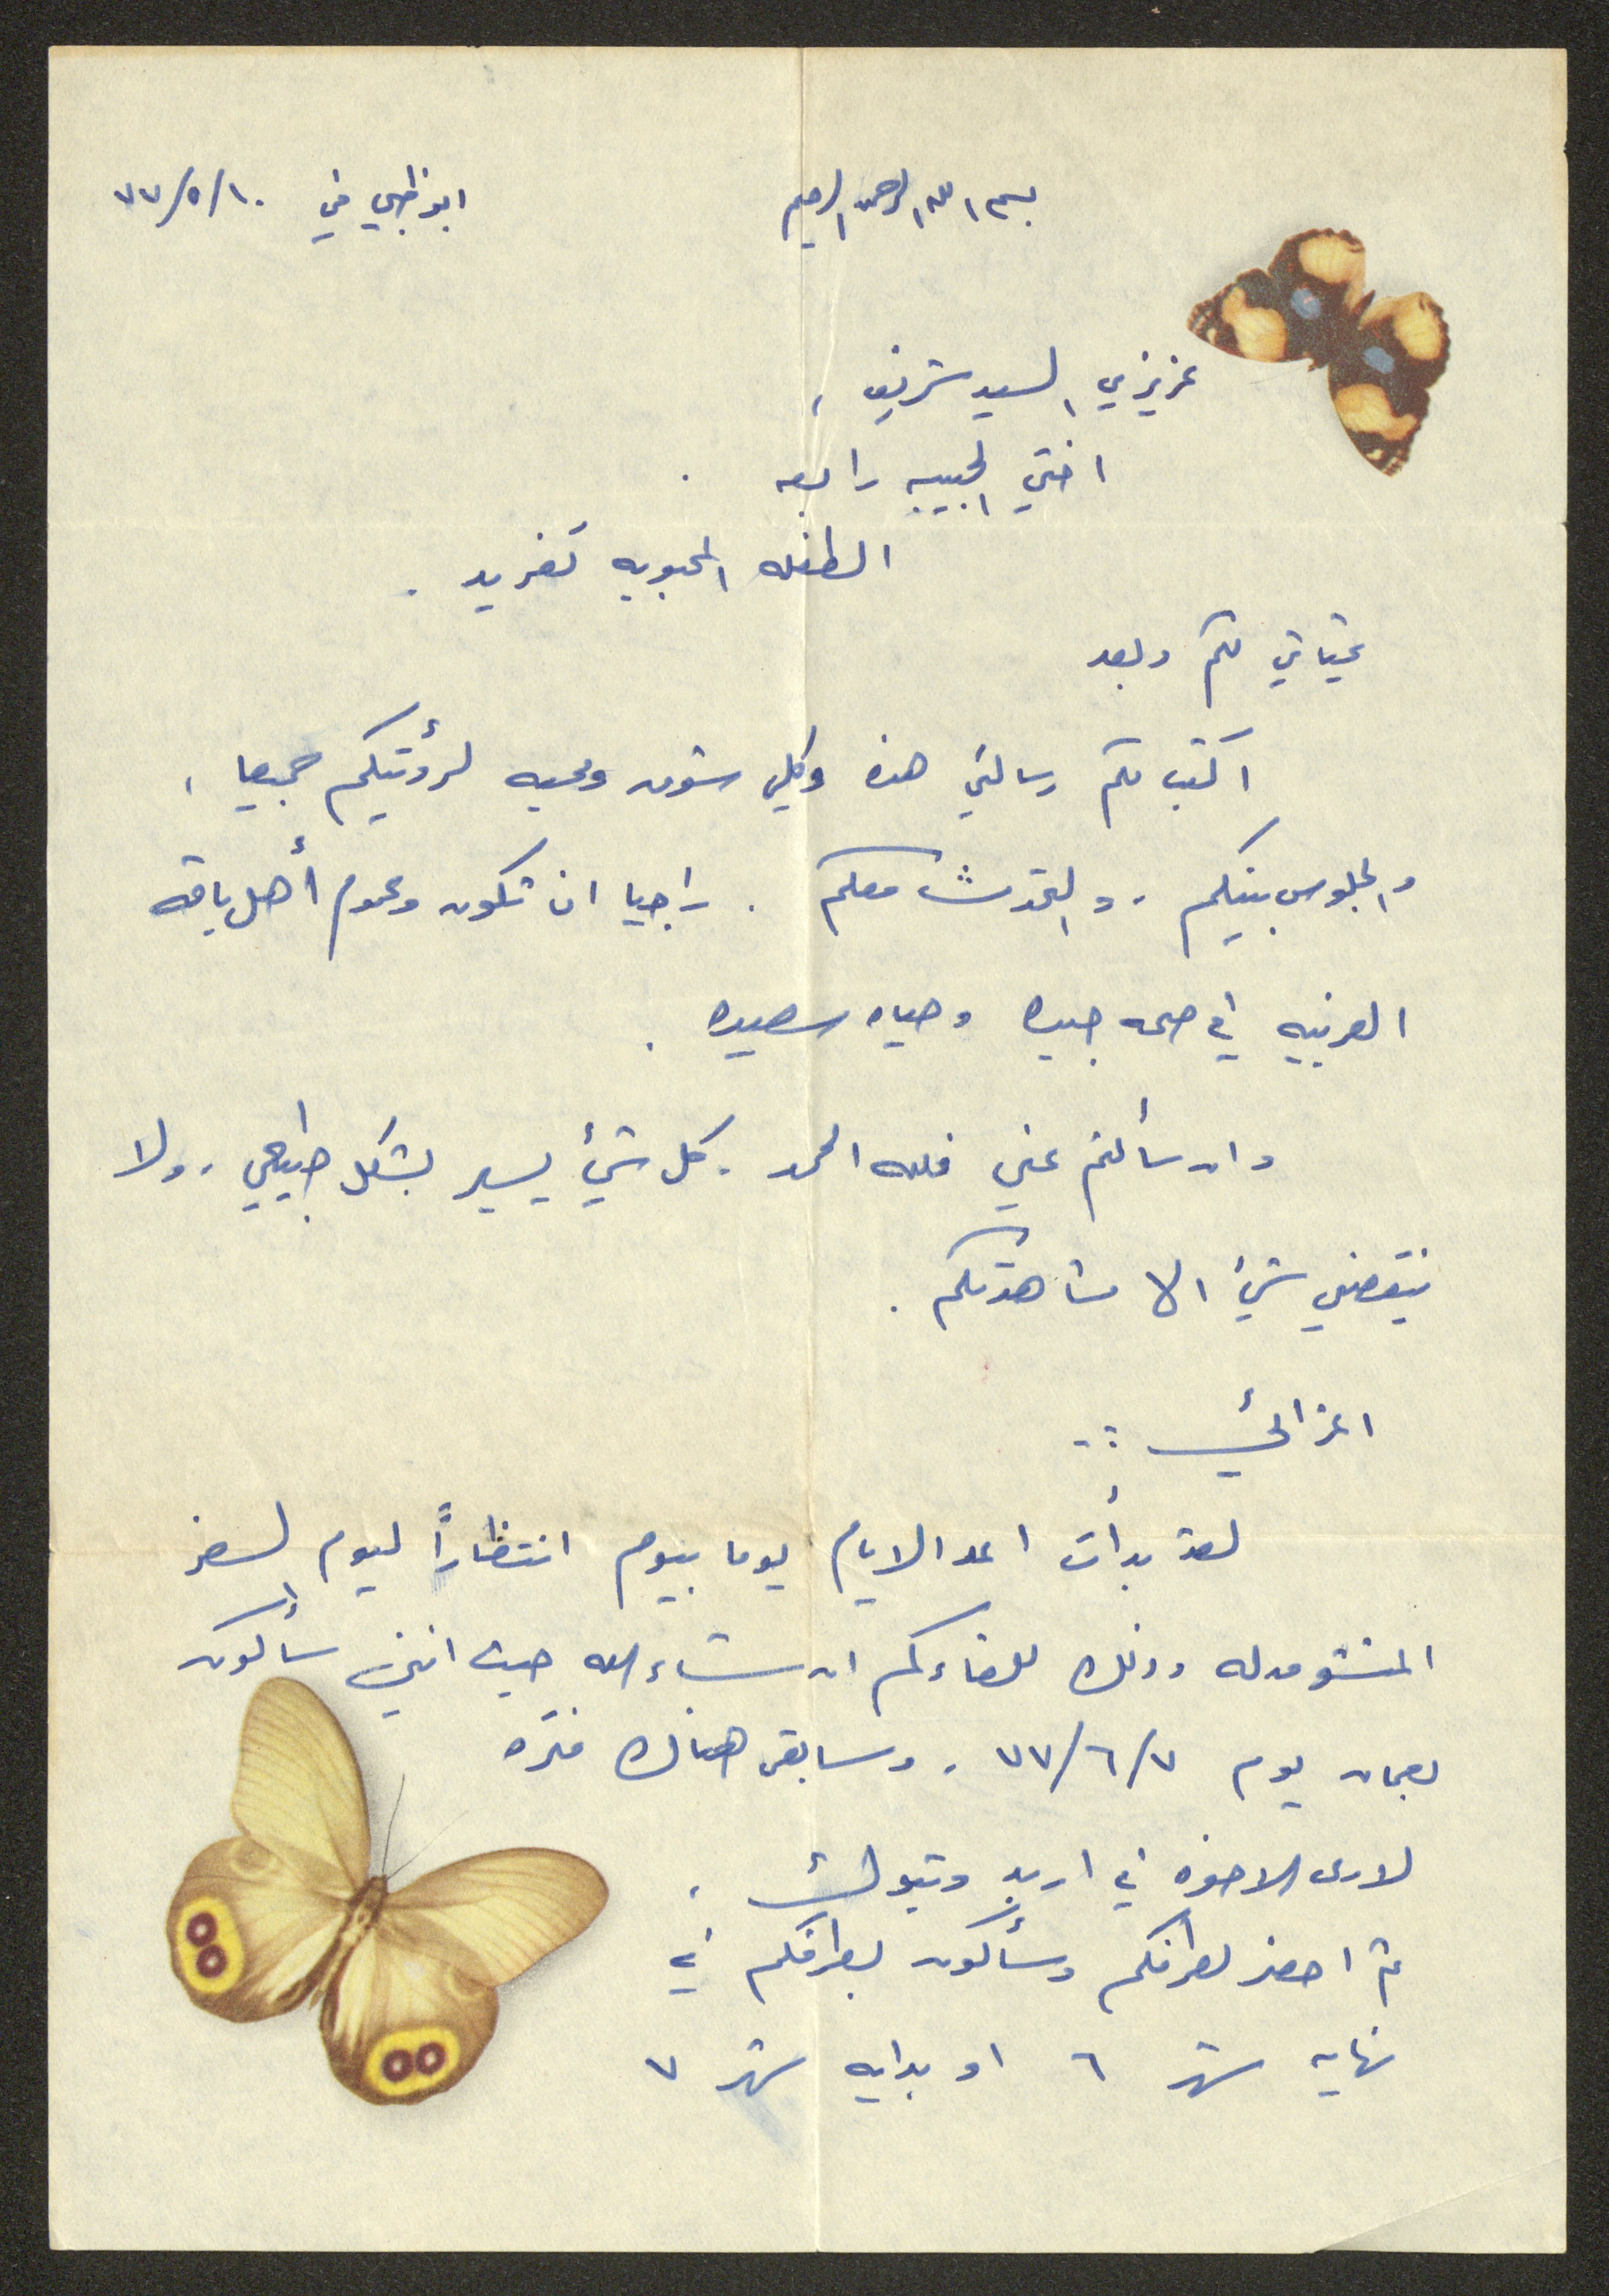 بسم الله الرحمن الرحيم
ابوظبي في ١٠/٥/٧٧
عزيزي السيد شريف ،
اختي الحبيبه رابعه .
الطفله المحبوبه تغريد .
تحياتي لكم وبعد
اكتب لكم رسالتي هذه وكلي شوق ومحبه لرؤيتكم جميعا ،
والجلوس بينكم ، والتحدث معكم . راجيا ان تكون وعموم أهل باقه
الغربيه في صحه جيده وحياه سعيده .
وان سألتم عني فلله الحمد . كل شيء يسير بشكل طبيعي ، ولا
ينقصني شيء الا مشاهدتكم .
اعزائي ..
لقد بدأت اعد الايام يوما بيوم انتظاراً ليوم السفر
وذلك للقاءكم ان شاء الله حيث انني سأكون
بعمان يوم ٧/٦/٧٧ ، وسابقى هناك فتره
لارى الاخوه في اربد وتبوك ،
ثم احضر لطرفكم وسأكون بطرفكم في
نهايه شهر ٦ او بدايه شهر ٧